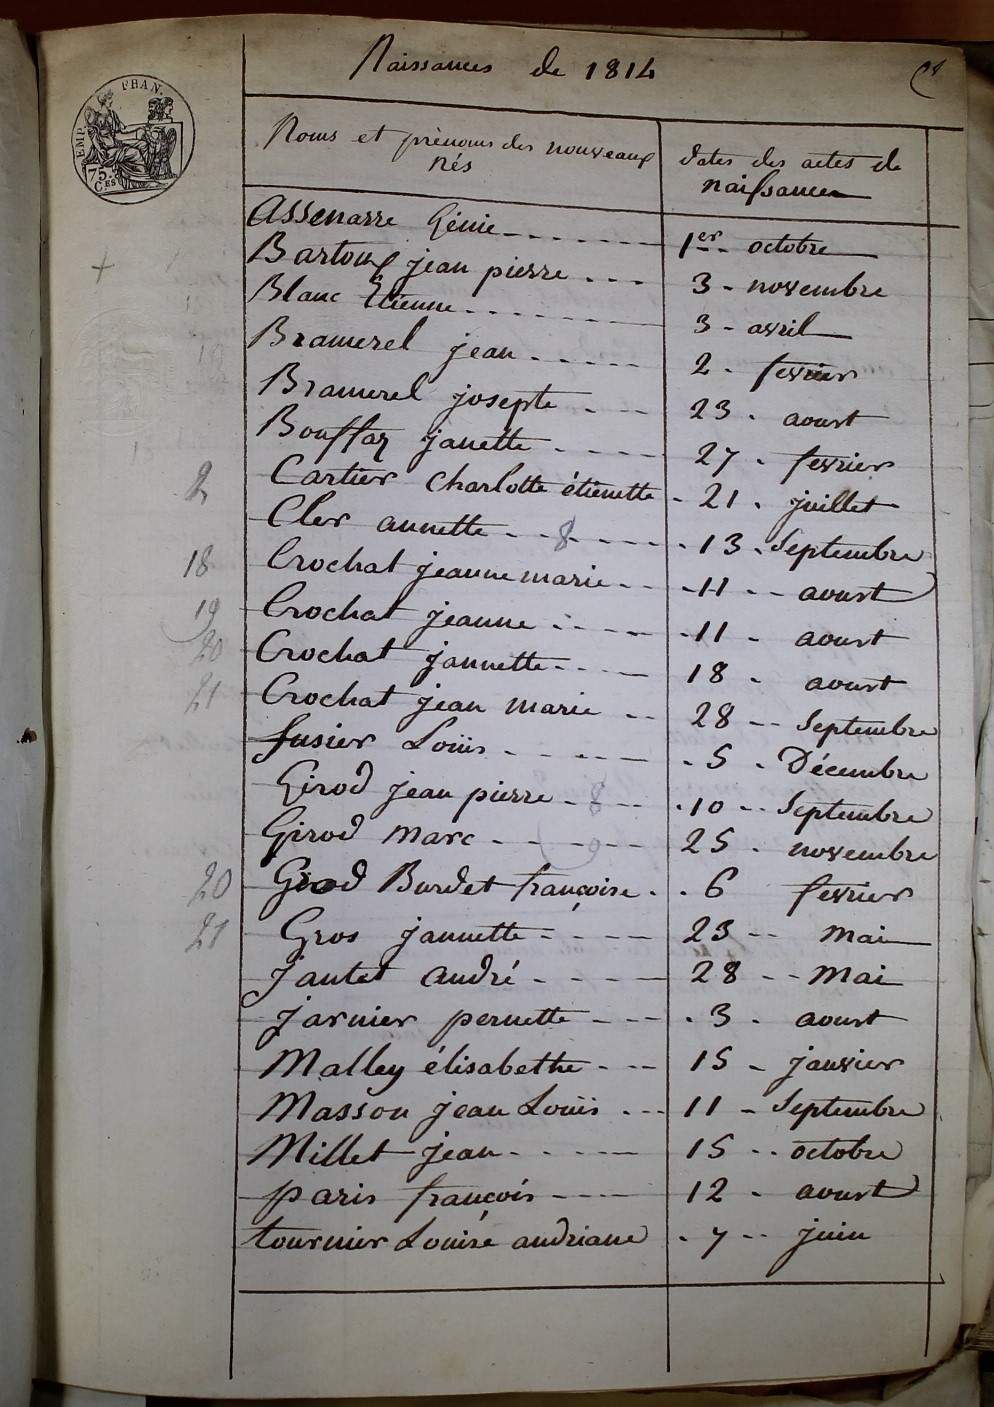 Naissances de 1814
EMP. FRAN.
75.
C.ES
Noms et prénoms des nouveaux nés
dates des actes de naissances
Assenarre Génie 1er octobre
+ Bartoux jean pierre 3 novembre
Blanc Etienne 3 avril
Bramerel jean 2 fevrier
Bramerel josepte 23 aoust
Bouffaz janette 27 fevrier
2 Cartier Charlotte étienette 21 juillet
Cler annette 8 13 Septembre
18 Crochat jeanne marie 11 aoust
19 Crochat jeanne 11 aoust
20 Crochat jannette 18 aoust
21 Crochat jean marie 28 Septembre
fusier Loüis 5 Décembre
Girod jean pierre 8 10 Septembre
Girod Marc 9 25 novembre
20 Girod Burdet françoise 6 fevrier
21 Gros jannette 23 mai
Jantet andré 28 Mai
jarnier pernette 3 aoust
Malley élisabethe 15 janvier
Masson jean Loüis 11 Septembre
Millet jean 15 octobre
paris françois 12 aoust
tournier Louise andriane 7 juin